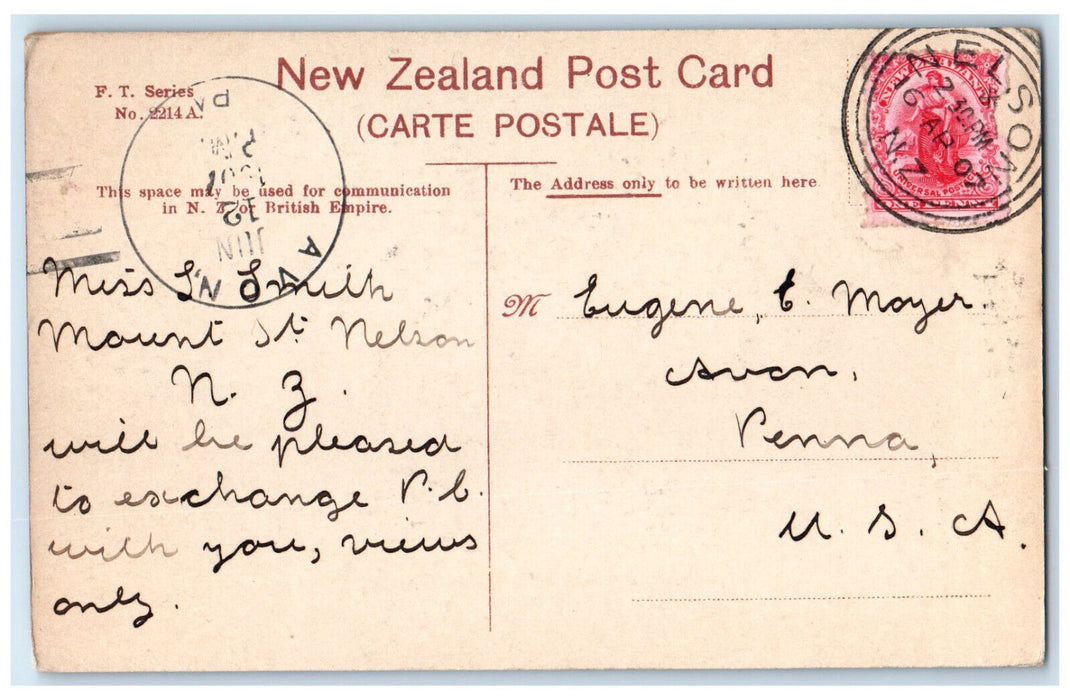 New Zealand Post Card
(CARTE POSTALE)
F. T. Series
No. 2214 A.
This space may be used for communication
in N. Z. or British Empire.
The Address only to be written here.
NELSON
2 30 PM
16 AP 07
N.Z
NEW ZEALAND
UNIVERSAL POSTAGE
ONE PENNY
AVON
PA
JUN
12
P.M.
1907
Miss L Smith
Mount St. Nelson
N. Z.
will be pleased
to exchange P.C.
with you, views
only.
M Eugene, C. Moyer
Avon,
Penna,
U. S. A.